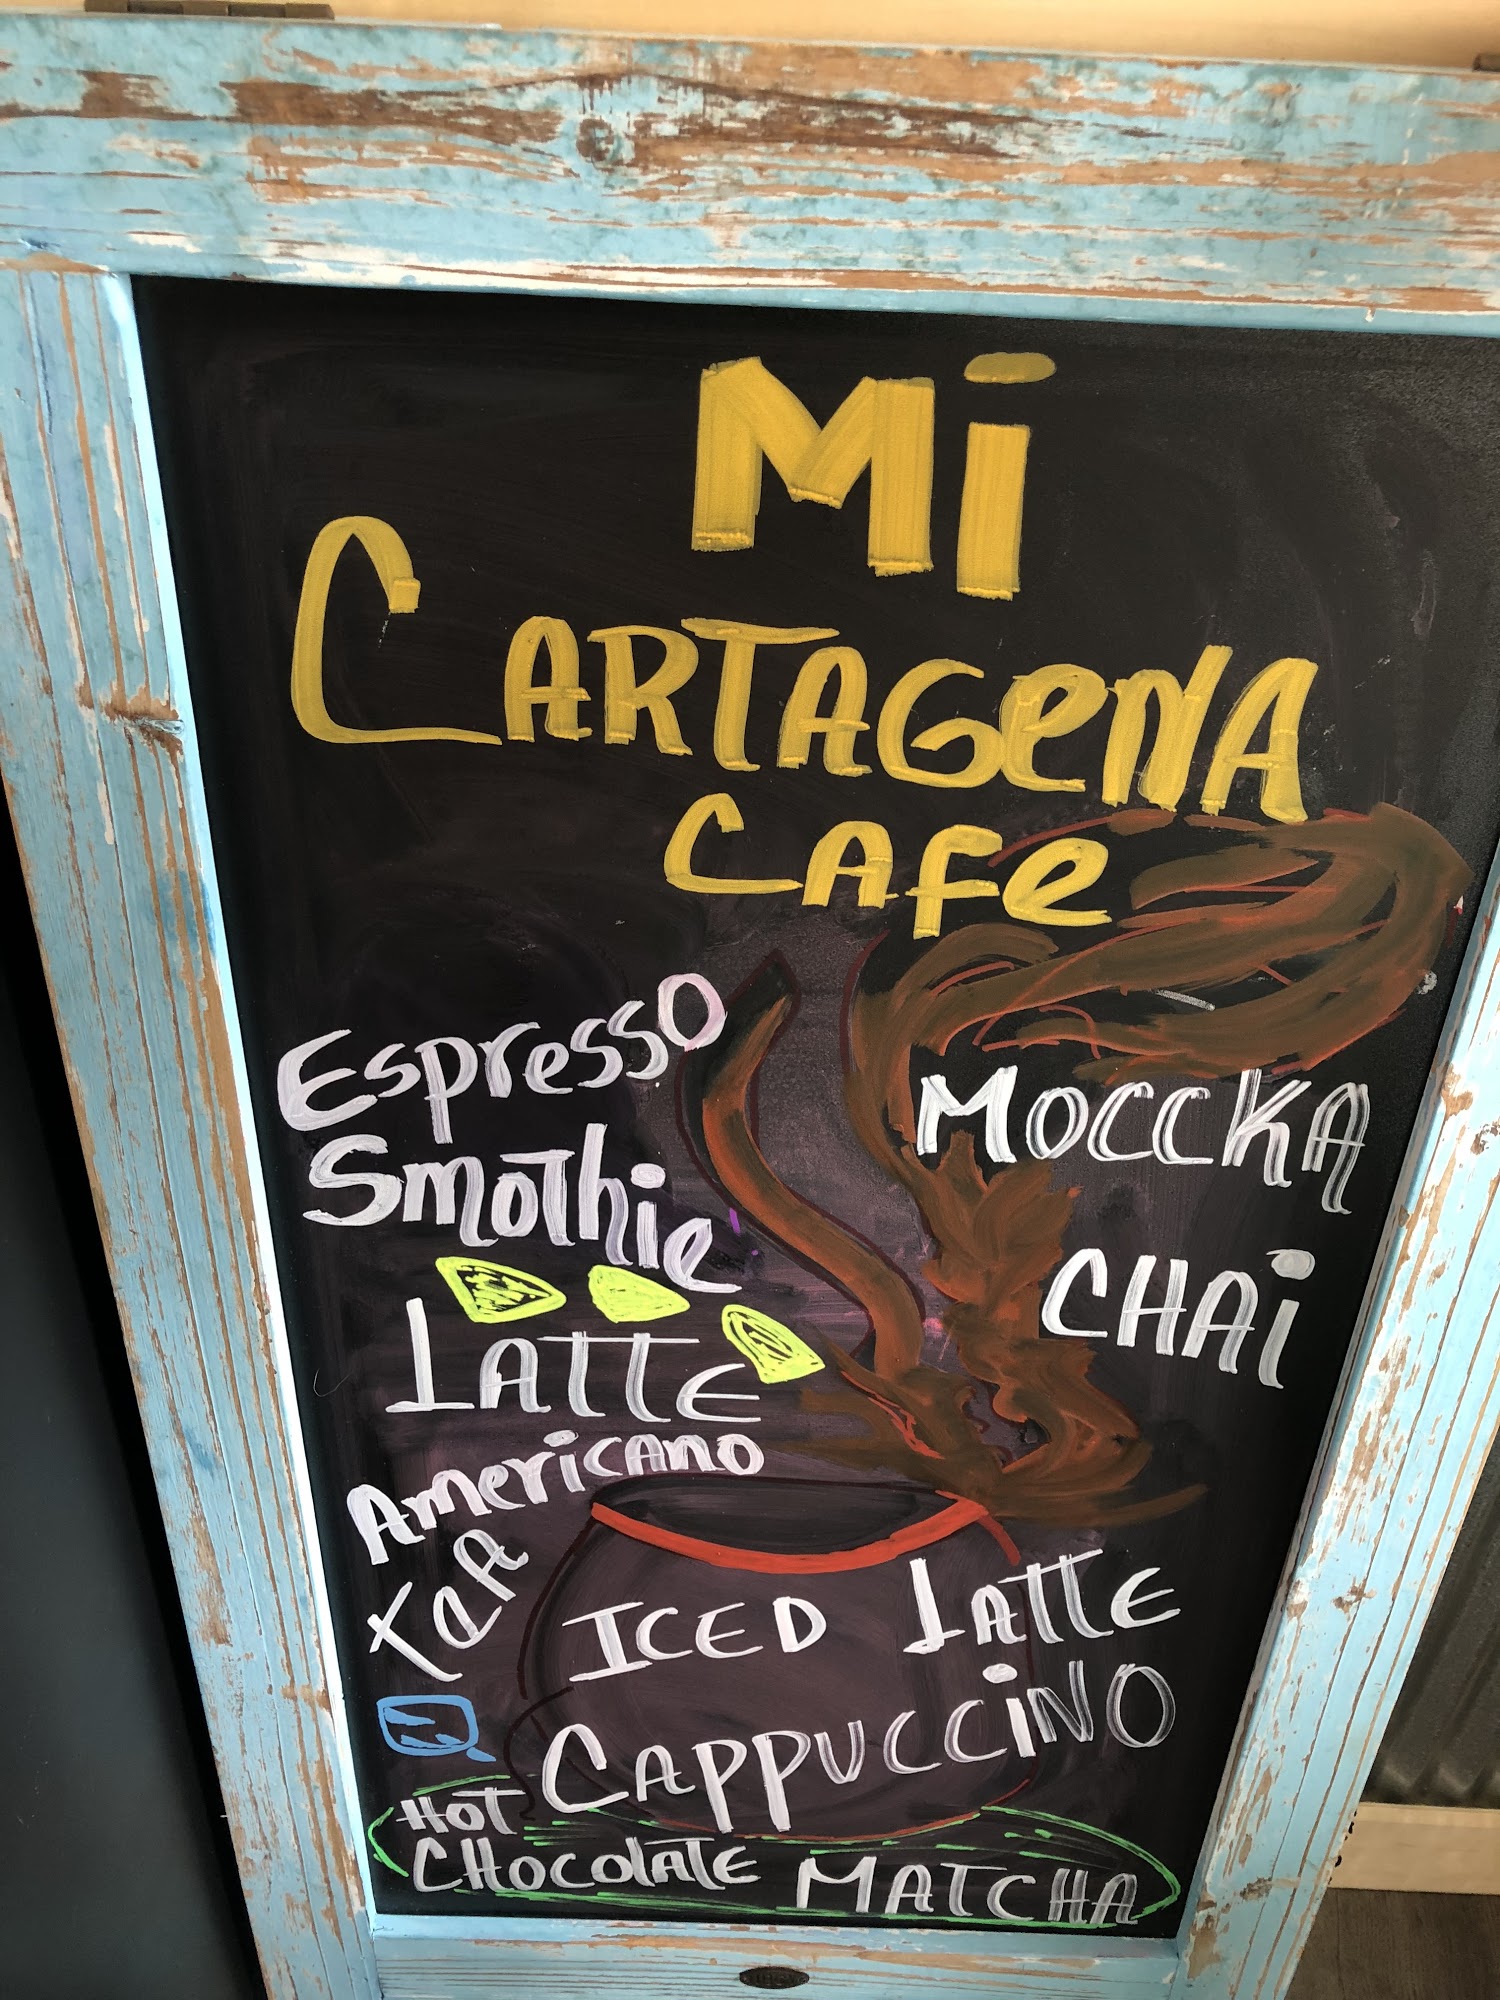 Mi
CARTAGeNA
CAfe
Espresso
Smothie
LATTE
AmericANO
TeA
MOCCKA
CHAi
ICED LATTE
CAPPUCCiNO
HOT
CHOCOlATE
MATCHA